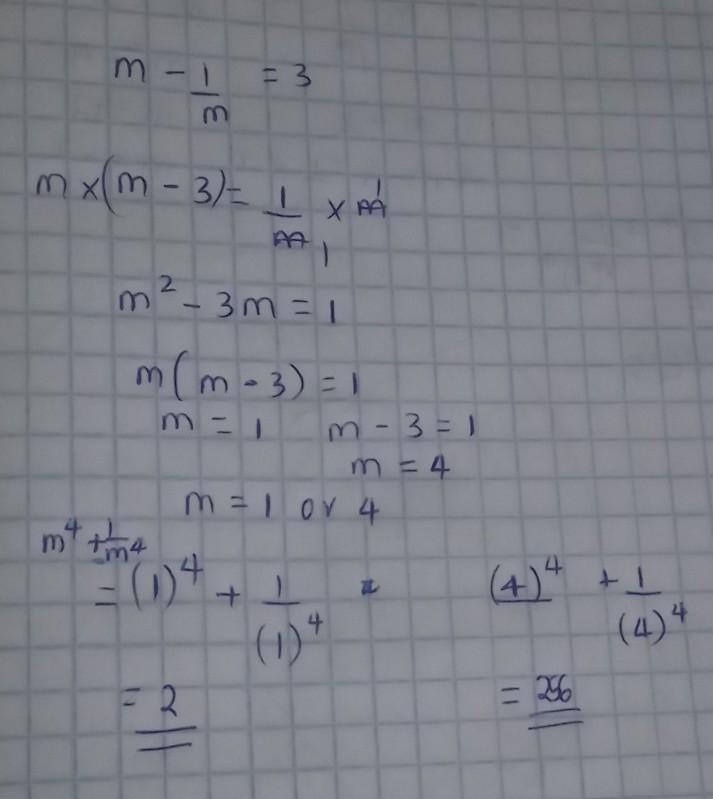 m - 1/m = 3
m × (m - 3) = 1/m × m 1 1
m² - 3m = 1
m(m - 3) = 1
m = 1 m - 3 = 1
m = 4
m = 1 or 4
m⁴ + 1/m⁴
= (1)⁴ + 1/(1)⁴ (4)⁴ + 1/(4)⁴
= 2 = 256